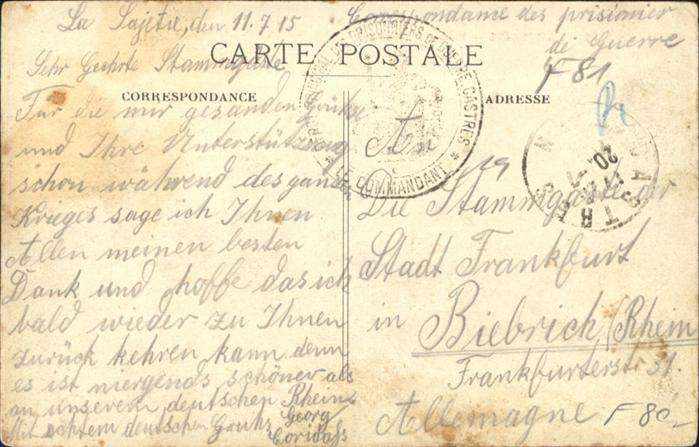 La Sajetie, den 11.7.15
Correspondance des prisionier
de Guerre
CARTE POSTALE
F 81
Sehr Geehrte Stammgäste
CORRESPONDANCE
ADRESSE
Für die mir gesanden Grüße
und Ihre Unterstützung
schon während des ganzen
Krieges sage ich Ihnen
Allen meinen besten
Dank und hoffe das ich
bald wieder zu Ihnen
zurück kehren kann denn
es ist niergends schöner als
an unserem deutschen Rhein
Mit echtem deutschen Gruß
Georg
DE PRISONNIERS DE GUERRE CASTRES
LE COMMANDANT
Die Stammgäste der
Stadt Frankfurt
in Biebrich/Rhein
Frankfurterstr 31.
Allemagne
F 80